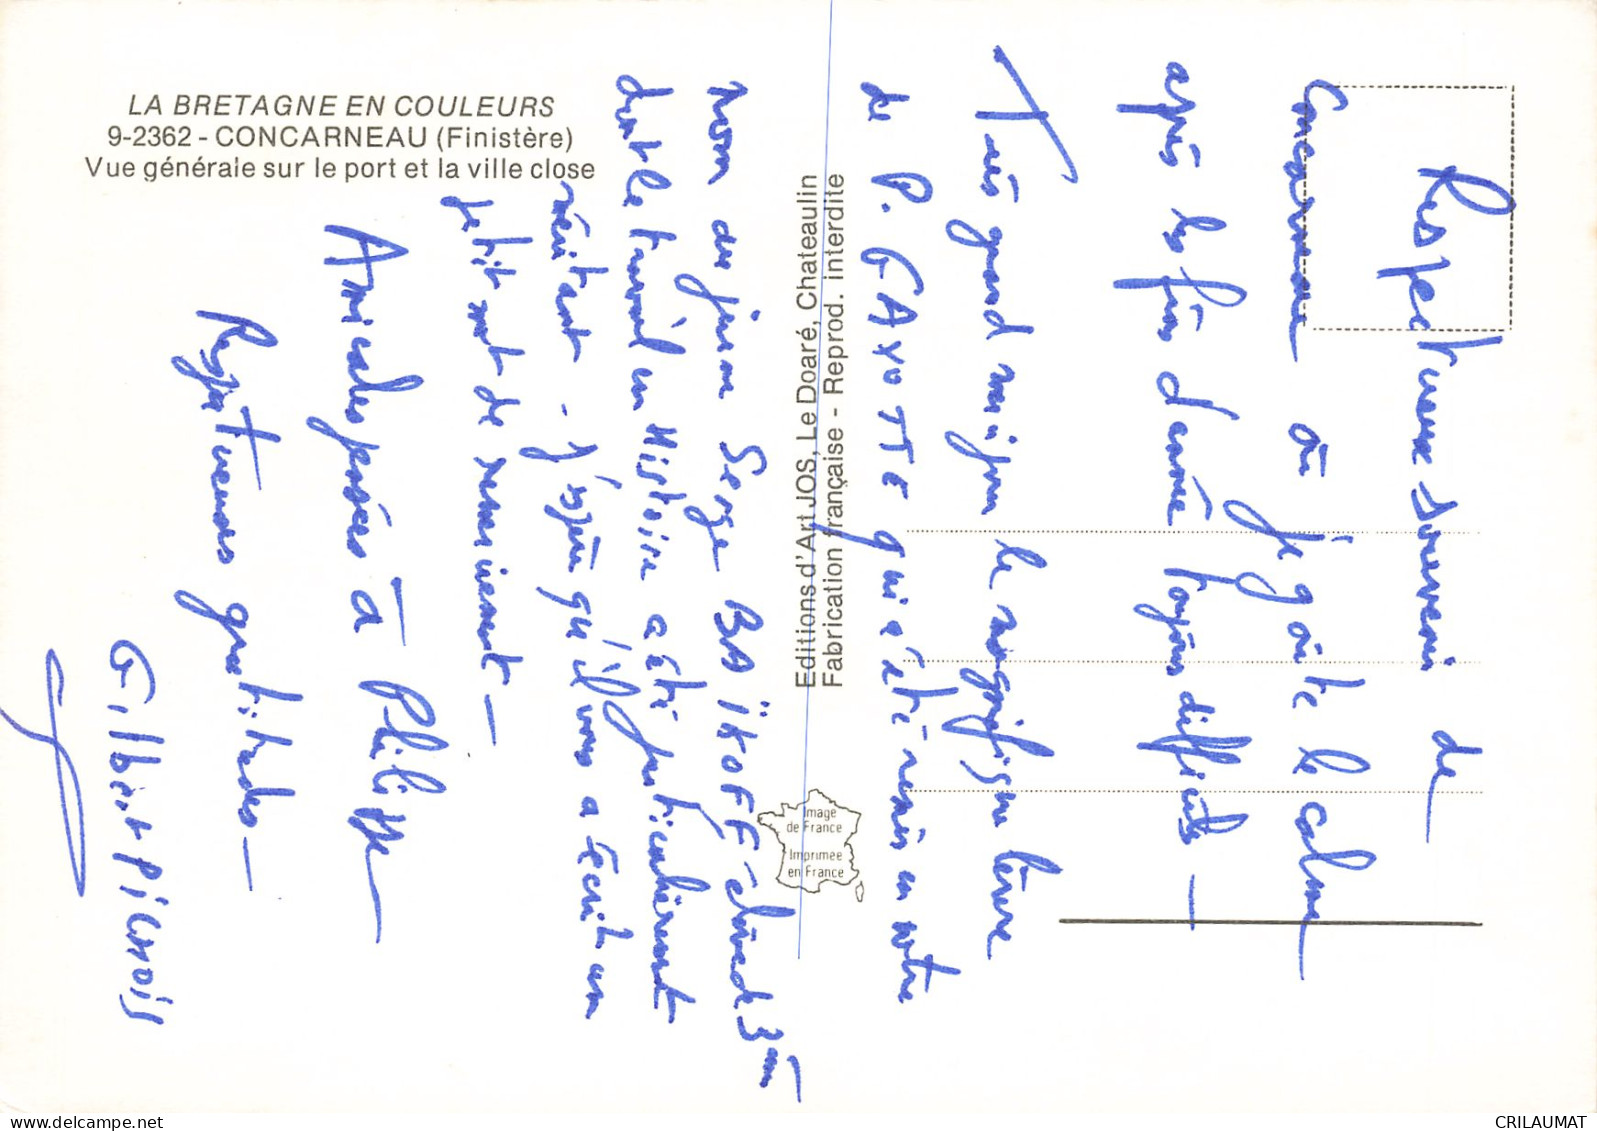 LA BRETAGNE EN COULEURS
9-2362 - CONCARNEAU (Finistère)
Vue générale sur le port et la ville close
Editions d'Art JOS, Le Doaré, Chateaulin
Fabrication française - Reprod. interdite
Image
de France
Imprimée
en France
Respectueux souvenir de
Concarneau où je goûte le calme
après les fins d'année toujours difficiles -
Très grand merci pour le magnifique livre
de P. GAXOTTE qui a été remis en votre
nom au jeune Serge BAÏKOFF élève de 3ème
dont le travail en Histoire a été particulièrement
méritant - J'espère qu'il vous a écrit un
petit mot de remerciement -
Amicales pensées à Philippe
Respectueuses gratitudes -
Gilbert
CRILAUMAT